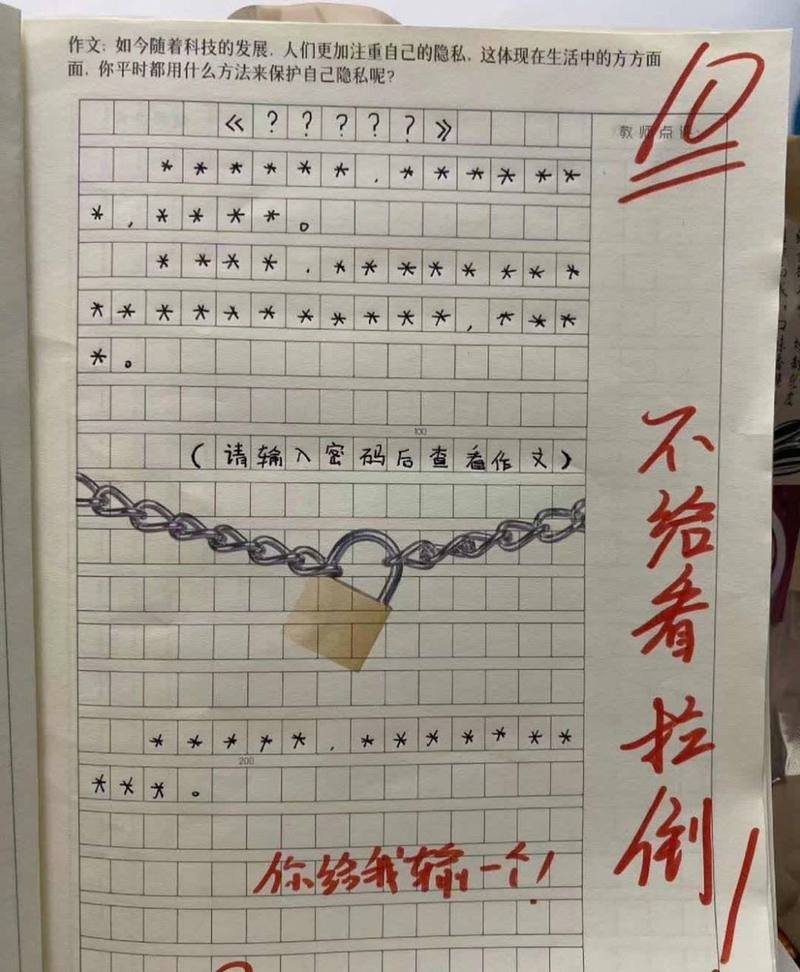 作文：如今随着科技的发展，人们更加注重自己的隐私，这体现在生活中的方方面
面，你平时都用什么方法来保护自己隐私呢？
10
教师点
《?????》
******，******
*，****。
****，********
***********，***
*。
100
（请输入密码后查看作文）
*****，*******
200
***。
你给我输一个！
不给看拉倒！